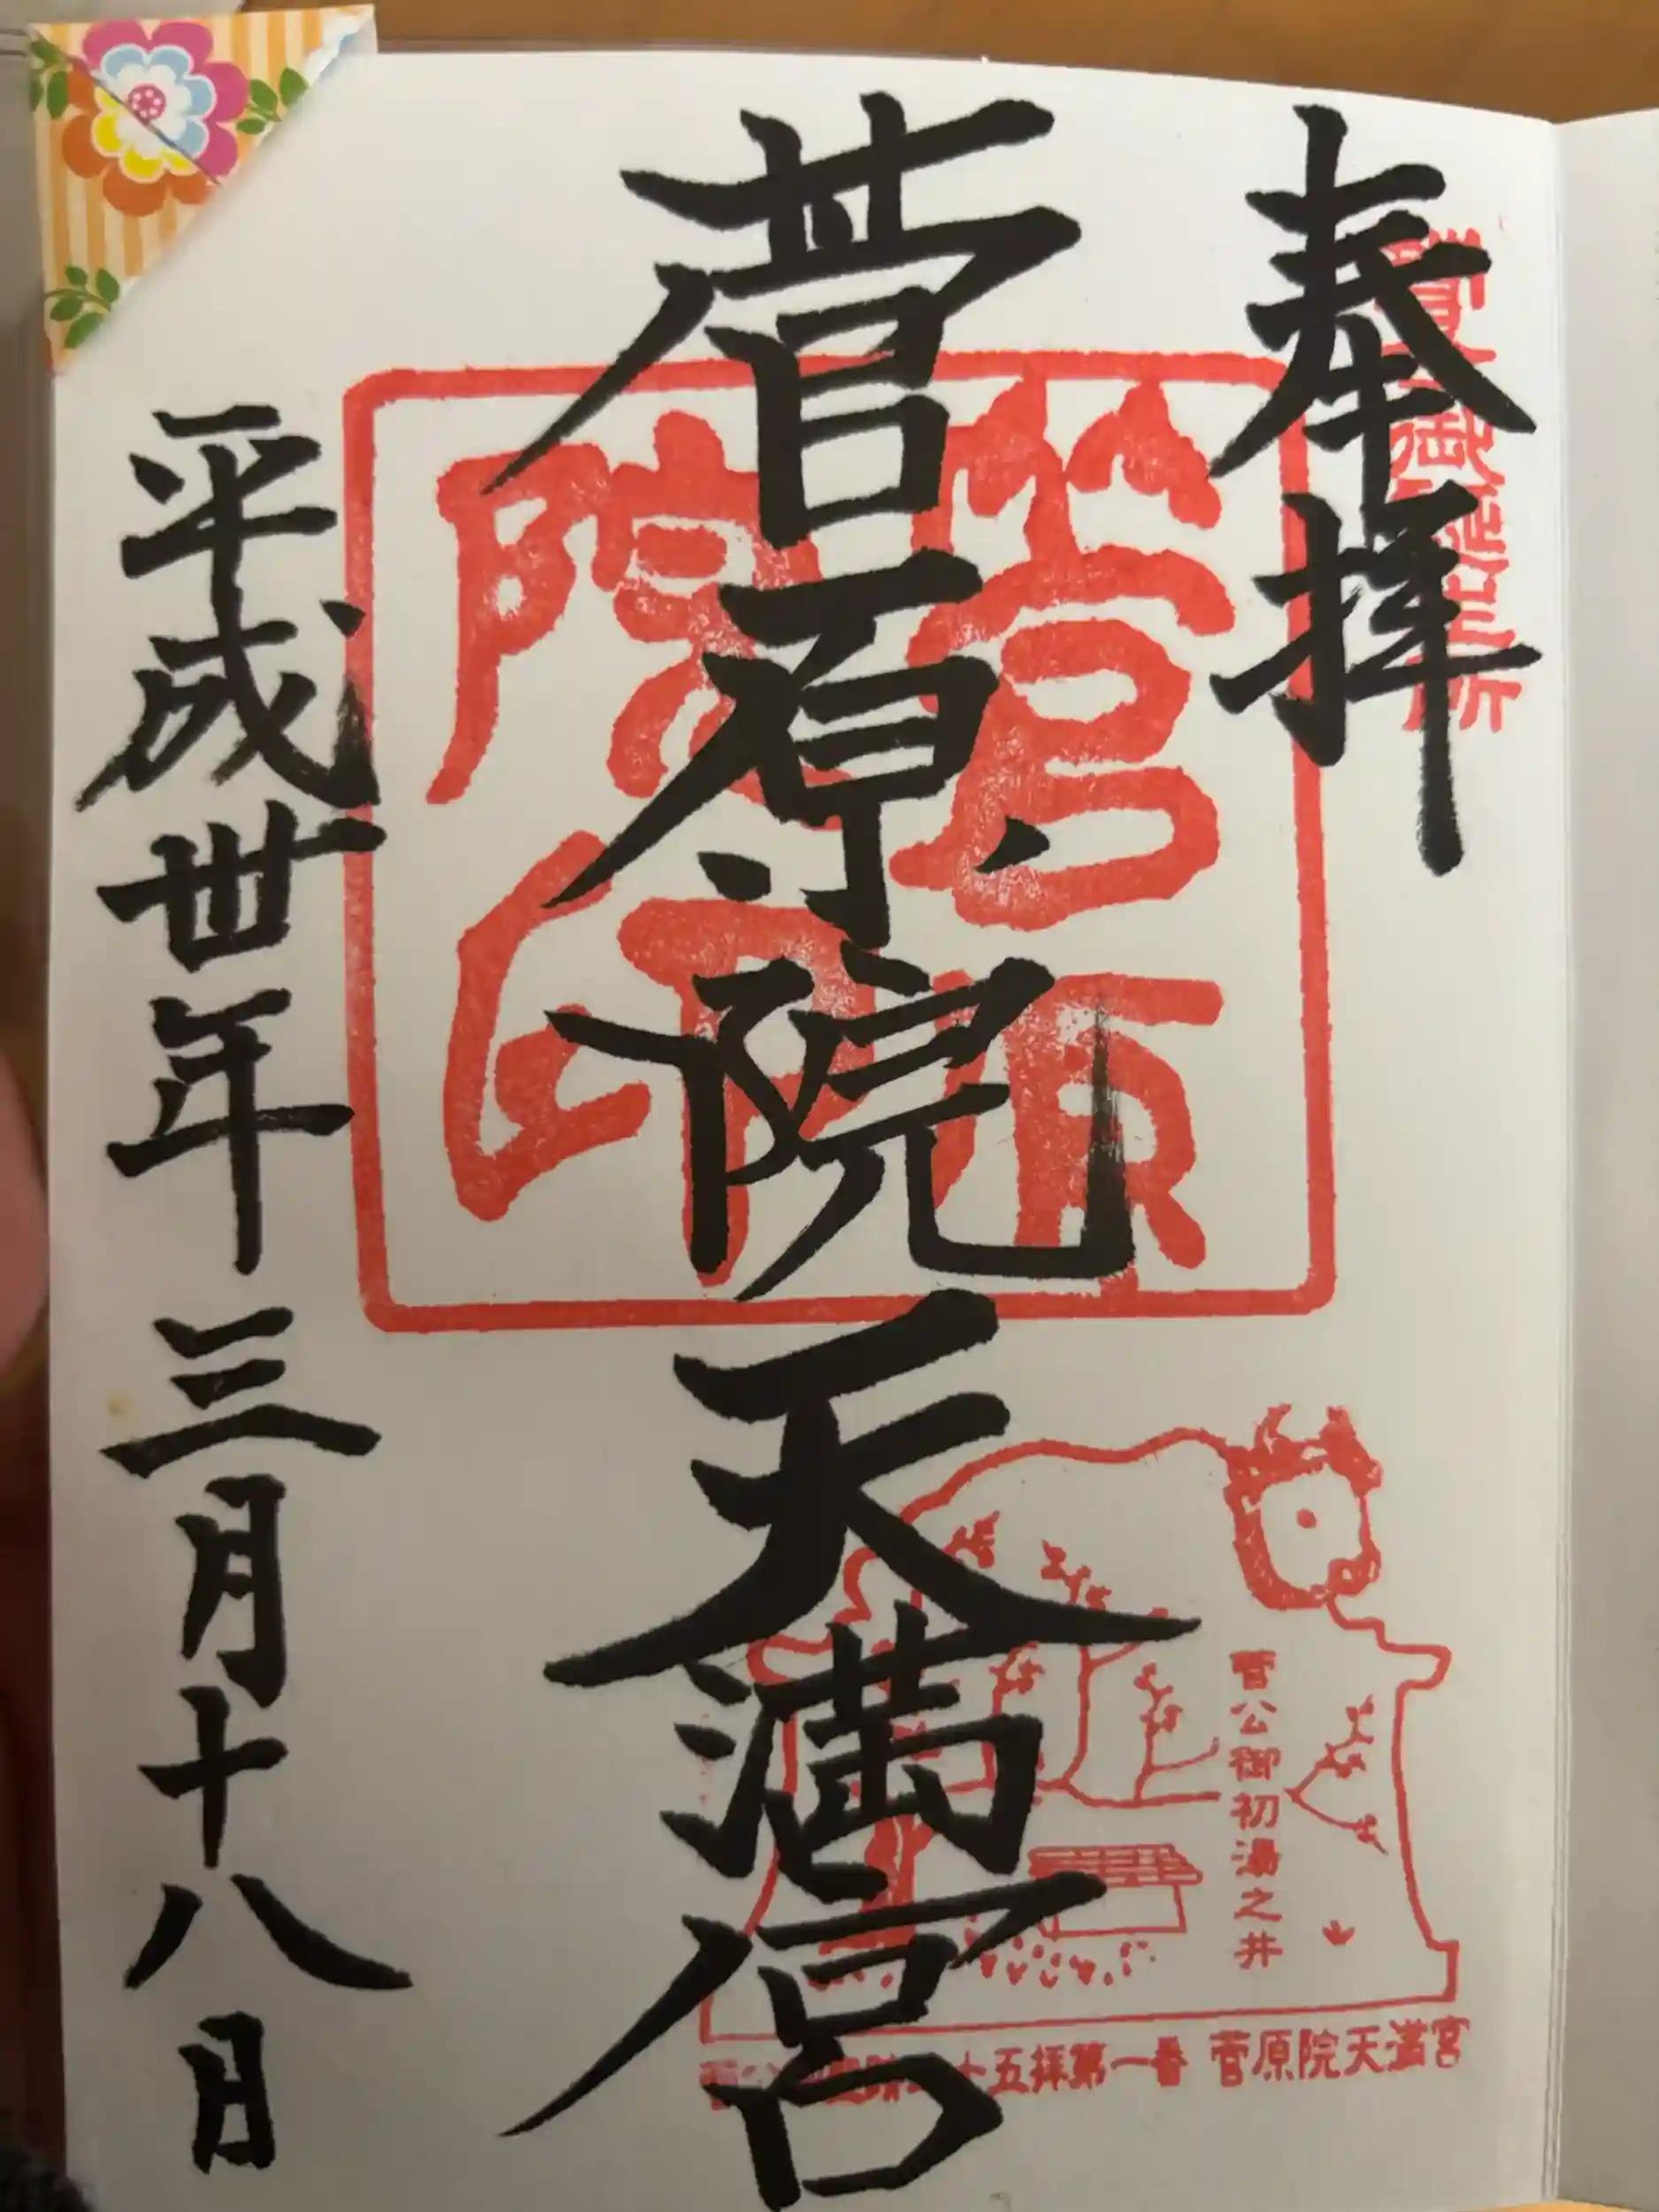 奉拝
菅原院天満宮
平成卅年三月十八日
菅公御初湯之井
十五拝第一番 菅原院天満宮